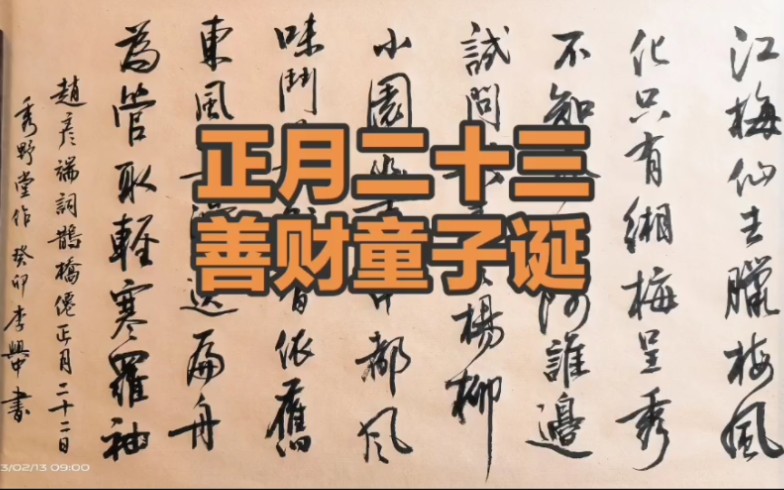 正月二十三
善财童子诞
江梅仙去臘梅風
化只有緗梅呈秀
不知阿誰邊
試問楊柳
小園中都風
味鬥依舊
東風送扁舟
為管取輕寒羅袖
趙彥端詞鵲橋僊正月二十二日
秀野堂作 癸卯李興中書
3/02/13 09:00